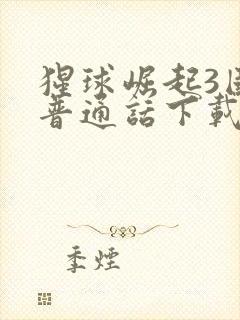 猩球崛起3国
普通話下載
季煙